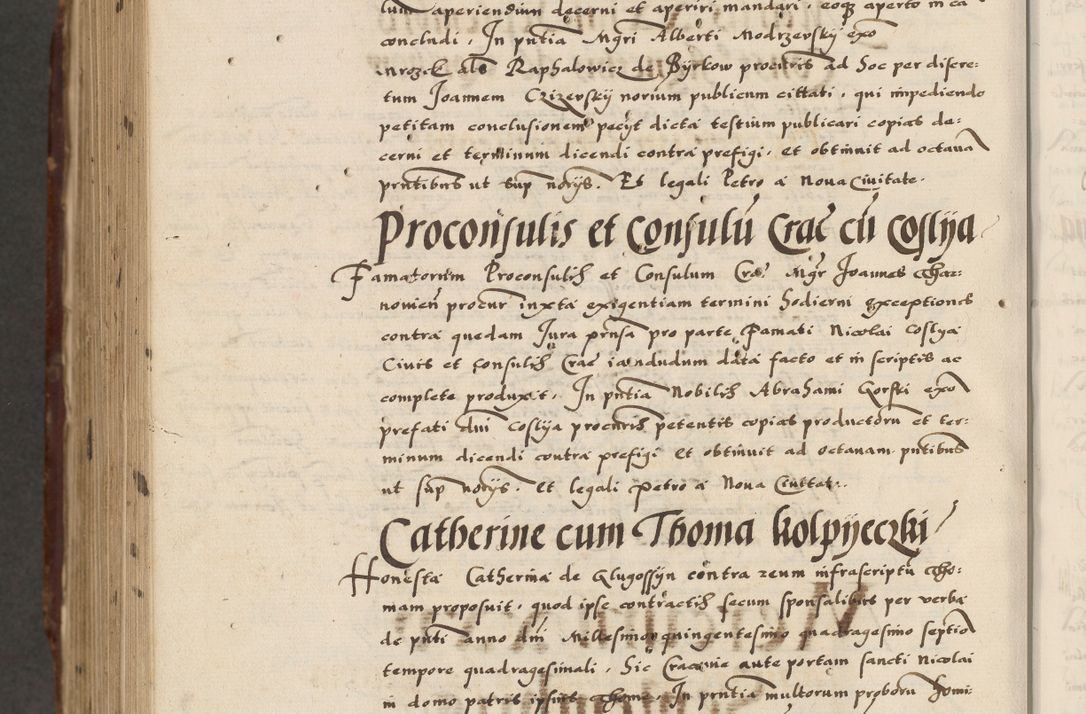 lum aperiendum decerni et aperiri mandari, eoq3 aperto in ea
concludi, In pntia Mgri Alberti Modrzewskij exo
Mrozek als Raphalowicz de Byrkow procutris ad hoc per discre:
tum Joannem Czizerskij norium publicum cittati, qui impediendo
petitam conclusionem pecijt dicta testium publicari copias de:
cerni et terminum dicendi contra prefigi, et obtinuit ad octaua
pntibus ut sup norijs. Et legali Petro a Noua Ciuitate.
Proconsulis et Consulu Crac cu Coslya
Famatorum Proconsulis et Consulum Crac Mgr Joannes
nouien procur iuxta exigentiam termini hodierni exceptiones
contra quedam Jura pnsa pro parte Famati Nicolai Coslya
Ciuis et Consulis Crac iamdudum data facto et in scriptis ac
complete produxit. In pntia Nobilis Abrahami Gorski exo
prefati dni Coslya procuris petentis copias productoru et ter:
minum dicendi contra prefigi et obtinuit ad octauam pntibus
ut sup norijs. Et legali Petro a Noua Ciuitat.
Catherine cum Thoma kolpyeczki
Honesta Catherina de Glugossyn contra reum infrascriptu Tho:
mam proposuit, quod ipse contractis secum sponsalibus per verba
de pnti anno dni Millesimo quingentesimo quadragesimo septio
tempore quadragesimali, hic Cracouie ante portam sancti Nicolai
in domo patris ipsius Thome, In pntia multorum proboru homi: